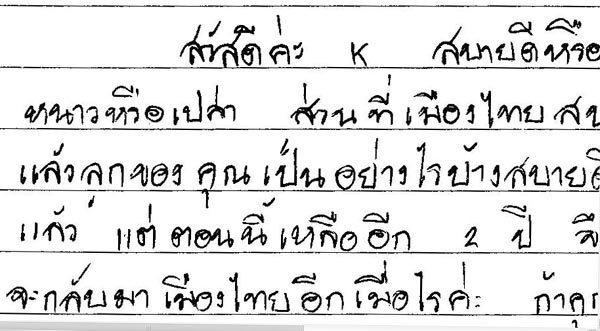 สวัสดีค่ะ K สบายดีหรือ
หนาวหรือเปล่า ส่วนที่เมืองไทย สบ
แล้วลูกของคุณเป็นอย่างไรบ้างสบายดี
แล้ว แต่ตอนนี้เหลืออีก 2 ปี จึ
จะกลับมาเมืองไทยอีกเมื่อไรค่ะ ถ้าคุ